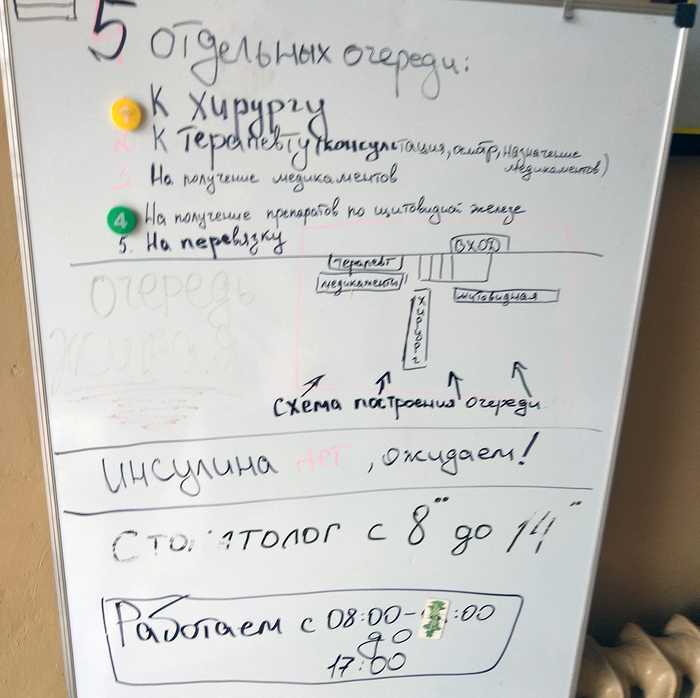 5 отдельных очереди:
1 К хирургу
2 К терапевту (консультация, осмотр, назначение медикаментов)
3 На получение медикаментов
4 На получение препаратов по щитовидной железе
5. На перевязку
ВХОД
терапевт
медикаменты
щитовидная
хирург
Очередь
живая
Схема построения очереди
Инсулина нет, ожидаем!
Стоматолог с 8⁰⁰ до 14⁰⁰
Работаем с 08:00- :00
до
17:00